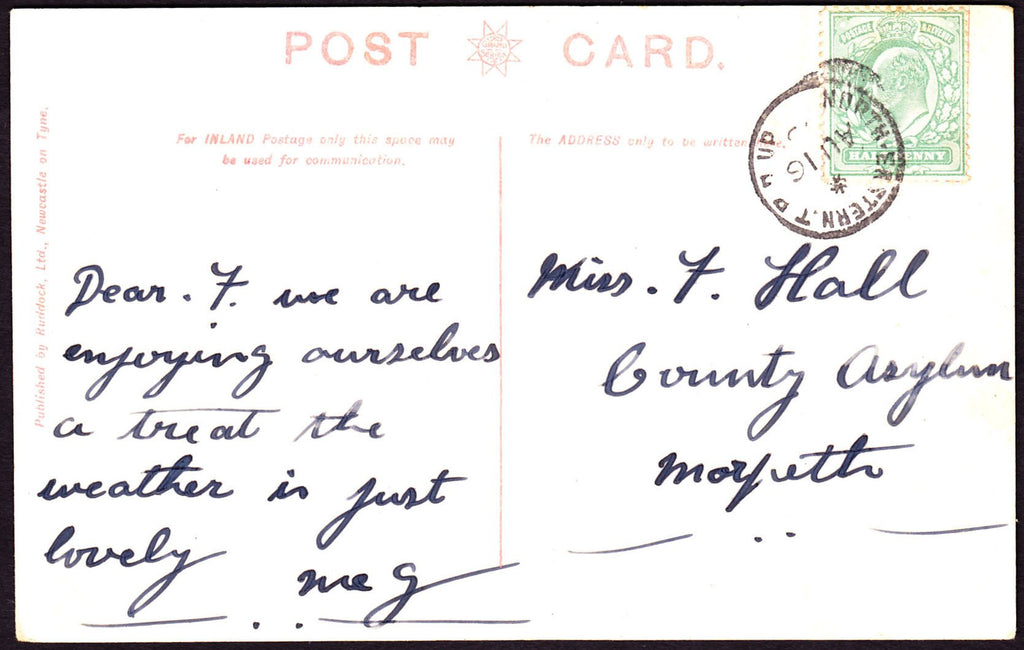 POST CARD.
For INLAND Postage only this space may
be used for communication.
The ADDRESS only to be written
Published by Ruddock, Ltd., Newcastle on Tyne.
POSTAGE & REVENUE
HALFPENNY
NORTH-EASTERN.T.P.O UP
AU 16
Dear. F. we are
enjoying ourselves
a treat the
weather is just
lovely
meg
Miss. F. Hall
County Asylum
Morpeth